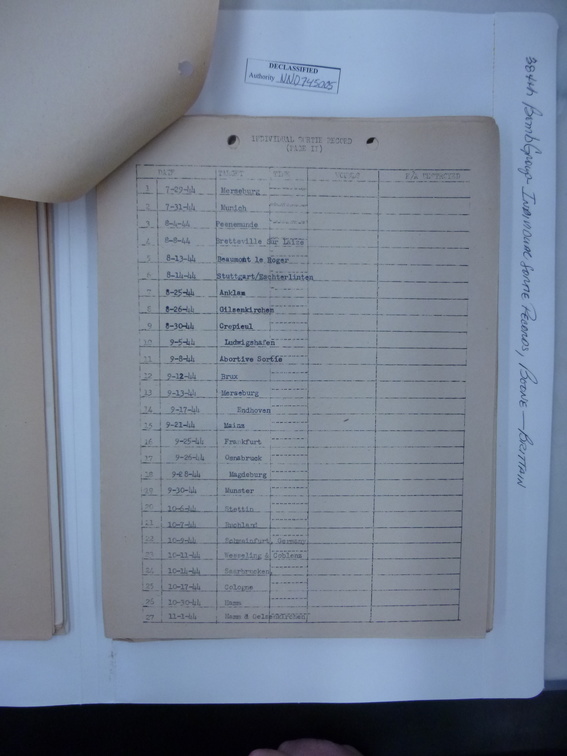 DECLASSIFIED
Authority NND 745005
384th Bomb Group Individual Sortie Records, Boone — Brittain
INDIVIDUAL SORTIE RECORD
(PAGE II)
DATE TARGET TIME
1 7-29-44 Merseburg
2 7-31-44 Munich
3 8-4-44 Peenemunde
4 8-8-44 Bretteville Sur Laize
5 8-13-44 Beaumont le Roger
6 8-14-44 Stuttgart/Echterlinten
7 8-25-44 Anklam
8 8-26-44 Gilsenkirchen
9 8-30-44 Crepieul
10 9-5-44 Ludwigshafen
11 9-8-44 Abortive Sortie
12 9-12-44 Brux
13 9-13-44 Merseburg
14 9-17-44 Endhoven
15 9-21-44 Mainz
16 9-25-44 Frankfurt
17 9-26-44 Osnabruck
18 9-28-44 Magdeburg
19 9-30-44 Munster
20 10-6-44 Stettin
21 10-7-44
22 10-9-44 Schweinfurt, Germany
23 10-11-44 Wesseling & Coblenz
24 10-14-44 Saarbrucken,
25 10-17-44 Cologne
26 10-30-44 Hamm
27 11-1-44 Hamm &